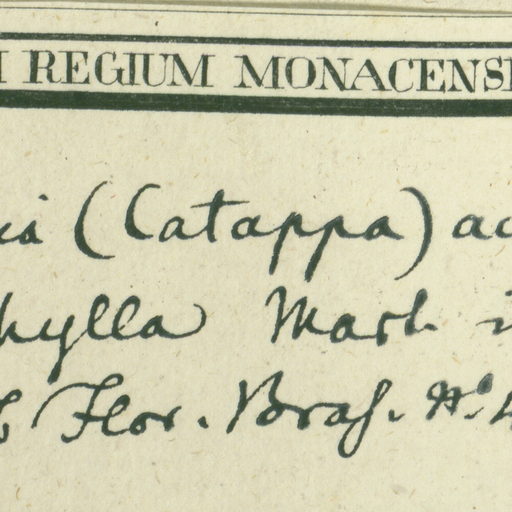 REGIUM MONACENS
(Catappa)
hylla Mart.
Flor. Bras. No.